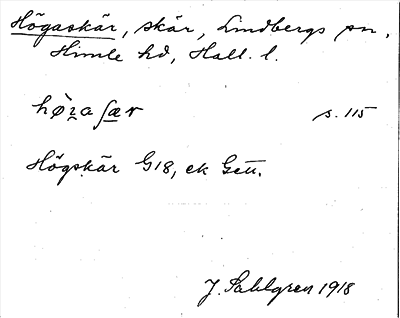 Högaskär, skär, Lindbergs sn,
Himle hd, Hall. l.
s. 115
Högskär G18, ek Gen.
J. Sahlgren 1918